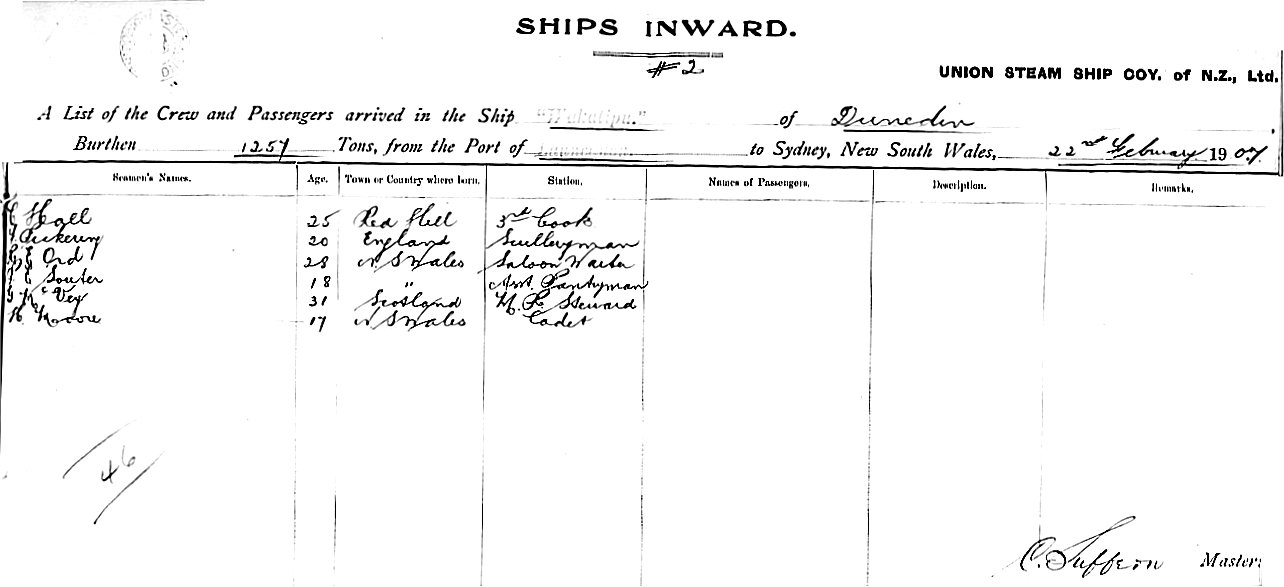 SHIPS INWARD.
#2
UNION STEAM SHIP COY. of N.Z., Ltd.
A List of the Crew and Passengers arrived in the Ship "Wakatipu." of Dunedin
Burthen 1257 Tons, from the Port of Launceston to Sydney, New South Wales, 22nd February 1907
Seamen's Names. Age. Town or Country where born. Station. Names of Passengers. Description. Remarks.
Hall 25 Red Hill 3rd Cook
Pickering 20 England Sculleryman
Ord 28 N S Wales Saloon Waiter
E Souter 18 " Asst. Pantryman
McVey 31 Scotland Steward
H. Moore 17 N S Wales Cadet
46
C. Suffern Master.